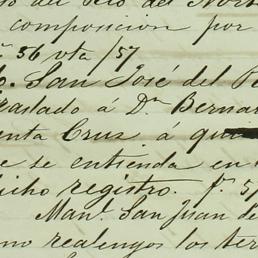 so del Rio del Nort
composicion por
56 vta / 57
San José del P
traslado á Dn. Bernar
enta Cruz á qui
e se entienda en
icho registro. f. 5
Manl. San Juan de
mo realengos los ter